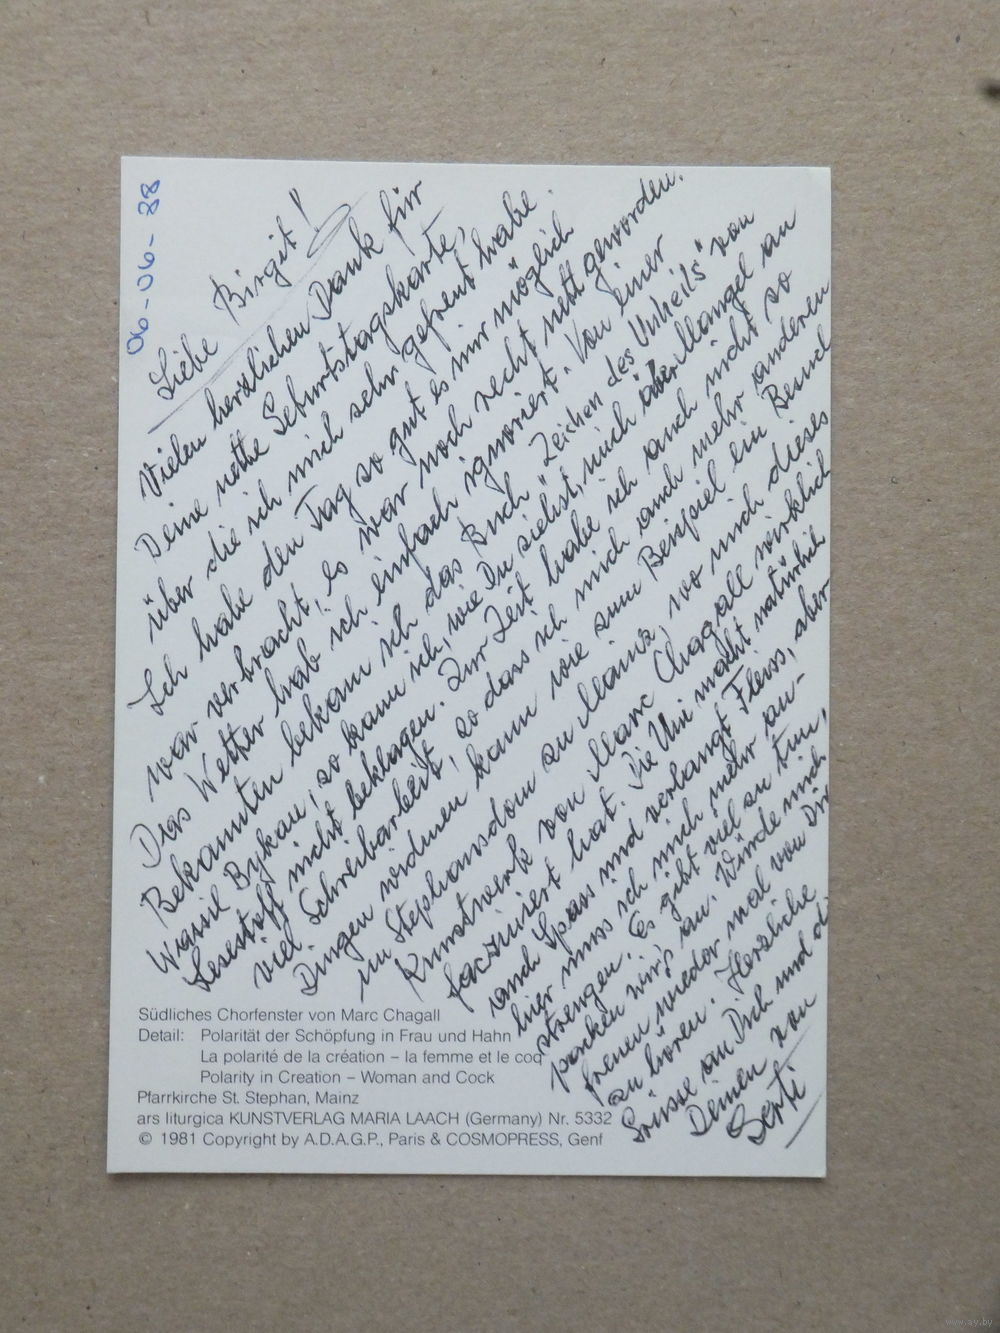 06-06-88
Liebe Birgit!
Vielen herzlichen Dank für
Deine nette Geburtstagskarte,
über die ich mich sehr gefreut habe.
Ich habe den Tag so gut es mir möglich
war verbracht, es war noch recht nett geworden.
Das Wetter hab ich einfach ignoriert. Von einer
Bekannten bekam ich das Buch "Zeichen des Unheils" von
Wassil Bykau, so kann ich, wie Du siehst, mich über Mangel an
Lesestoff nicht beklagen. Zur Zeit habe ich auch nicht so
viel Schreibarbeit, so dass ich mich auch mehr anderen
Dingen widmen kann wie zum Beispiel ein Besuch
im Stephansdom zu Mainz, wo mich dieses
Kunstwerk von Marc Chagall wirklich
fasziniert hat. Die Uni macht natürlich
auch Spass und verlangt Fleiss, aber
hier muss ich mich mehr an-
strengen. Es gibt viel zu tun,
packen wir's an. Würde mich
freuen wieder mal von Dir
zu hören. Herzliche
Grüsse an Dich und d
Deinen von
Berti
Südliches Chorfenster von Marc Chagall
Detail: Polarität der Schöpfung in Frau und Hahn
La polarité de la création – la femme et le coq
Polarity in Creation – Woman and Cock
Pfarrkirche St. Stephan, Mainz
ars liturgica KUNSTVERLAG MARIA LAACH (Germany) Nr. 5332
© 1981 Copyright by A.D.A.G.P., Paris & COSMOPRESS, Genf
www.ay.by